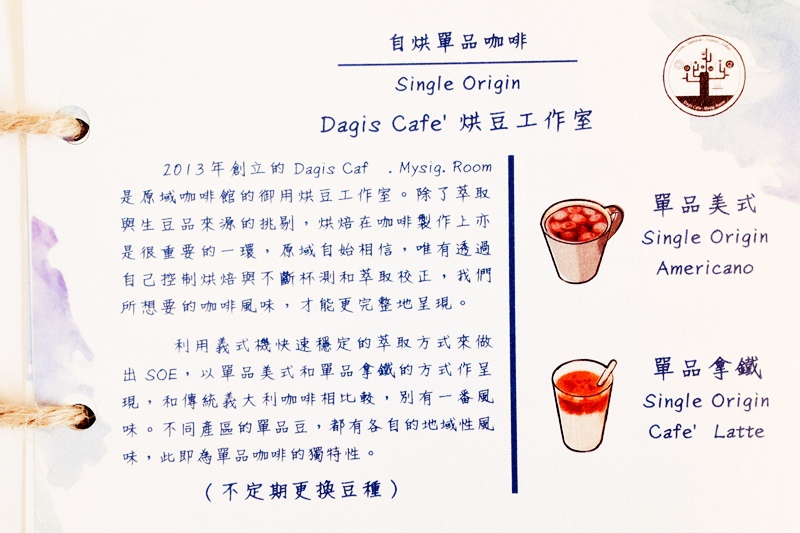 自烘單品咖啡
Single Origin
Dagis Cafe' 烘豆工作室
2013年創立的 Dagis Caf . Mysig. Room
是原域咖啡館的御用烘豆工作室。除了萃取
與生豆品來源的挑剔，烘焙在咖啡製作上亦
是很重要的一環，原域自始相信，唯有透過
自己控制烘焙與不斷杯測和萃取校正，我們
所想要的咖啡風味，才能更完整地呈現。
利用義式機快速穩定的萃取方式來做
出 SOE，以單品美式和單品拿鐵的方式作呈
現，和傳統義大利咖啡相比較，別有一番風
味。不同產區的單品豆，都有各自的地域性風
味，此即為單品咖啡的獨特性。
(不定期更換豆種)
單品美式
Single Origin
Americano
單品拿鐵
Single Origin
Cafe' Latte